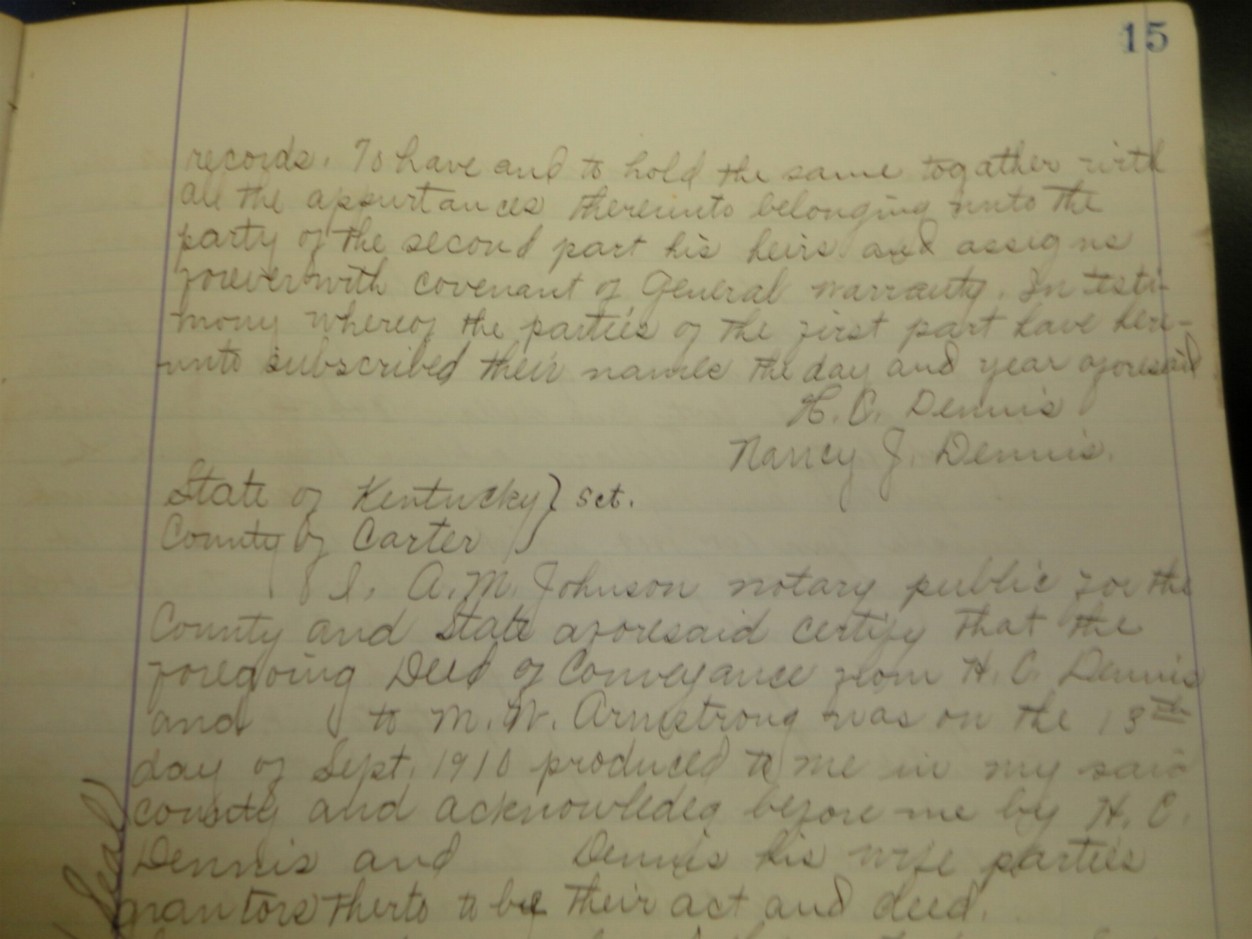 15
records. To have and to hold the same togather with
all the appurtances thereinto belonging unto the
party of the second part his heirs and assigns
forever with covenant of General warranty. In testi-
mony whereof the parties of the first part have here-
unto subscribed their names the day and year aforesaid
H. C. Dennis
Nancy J. Dennis.
State of Kentucky } sct.
County of Carter
I, A. M. Johnson notary public for the
County and State aforesaid certify that the
foregoing Deed of Conveyance from H. C. Dennis
and to M. W. Armstrong was on the 13th
day of Sept. 1910 produced to me in my said
county and acknowledeg before me by H. C.
Dennis and Dennis his wife parties
grantors therto to be their act and deed.
(Seal)